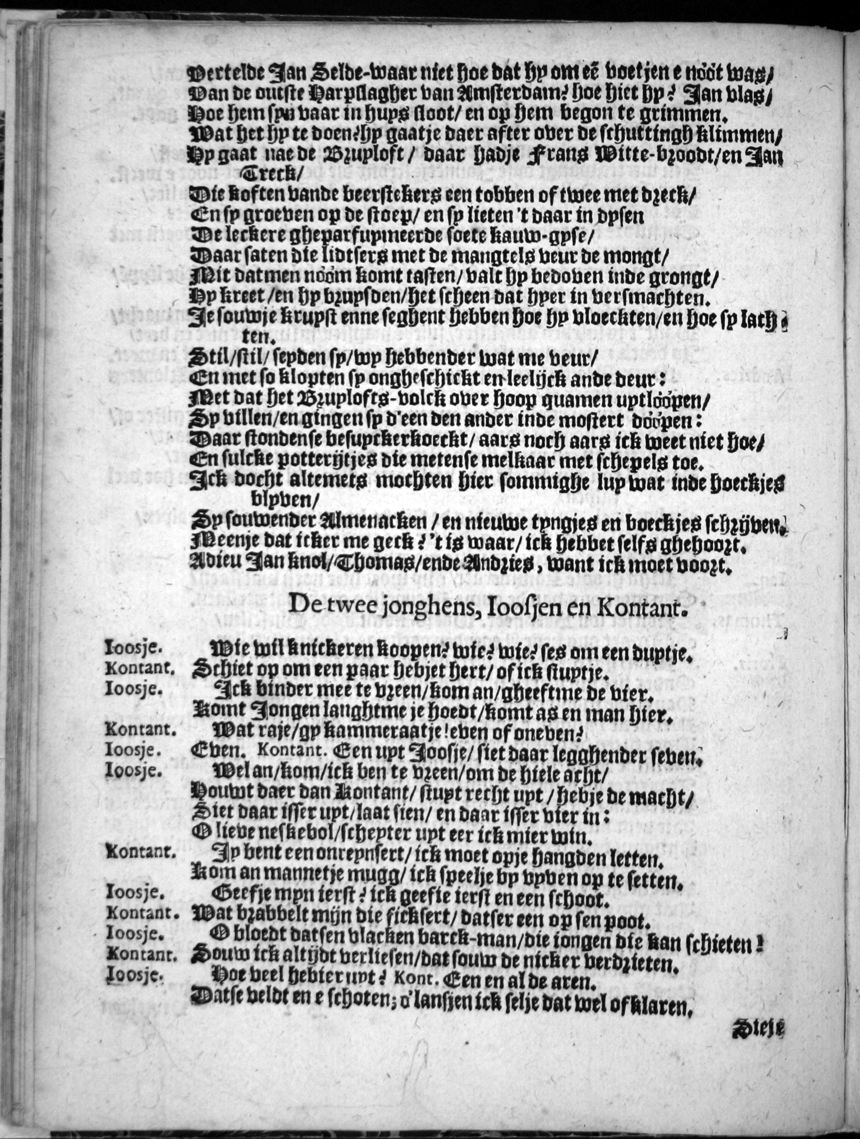 Vertelde Jan Selde-waar niet hoe dat hy om eẽ voetjen e nòòt was/
Van de outste Harpslagher van Amsterdam? hoe hiet hy? Jan vlas/
Hoe hem syn vaar in huys sloot/ en op hem begon te grimmen.
Wat het hy te doen? hy gaatje daer after over de schuttingh klimmen/
Hy gaat nae de Bruyloft/ daar hadje Frans Witte-broodt/ en Jan
Treck/
Die koften vande beerstekers een tobben of twee met dreck/
En sy groeven op de stoep/ en sy lieten 't daar in dysen
De leckere gheparfuymeerde soete kauw-gyse/
Daar saten die lidtsers met de mangtels veur de mongt/
Mit datmen nòòm komt tasten/ valt hy bedoven inde grongt/
Hy kreet/ en hy bruysden/ het scheen dat hyer in versmachten.
Je souwje kruyst enne seghent hebben hoe hy vloeckten/ en hoe sy lach
ten.
Stil/ stil/ seyden sy/ wy hebbender wat me veur/
En met so klopten sy ongheschickt en leelijck ande deur:
Met dat het Bruylofts-volck over hoop quamen uytlòòpen/
Sy villen/ en gingen sy d'een den ander inde mostert dòòpen:
Daar stondense besuyckerkoeckt/ aars noch aars ick weet niet hoe/
En sulcke potterijtjes die metense melkaar met schepels toe.
Ick docht altemets mothten hier sommighe luy wat inde hoeckjes
blyven/
Sy souwender Almenacken/ en nieuwe tyngjes en boeckjes schrijven.
Meenje dat icker me geck? 't is waar/ ick hebbet selfs ghehoort.
Adieu Jan knol/ Thomas/ ende Andries, want ick moet voort.
De twee jonghens, Ioosjen en Kontant.
Ioosje. Wie wil knickeren koopen? wie? wie? ses om een duytje.
Kontant. Schiet op om een paar hebjet hert/ of ick stuytje.
Ioosje. Ick binder mee te vreen/ kom an/ gheeftme de vier.
Komt Jongen langhtme je hoedt/ komt as en man hier.
Kontant. Wat raje/ gy kammeraatje! even of oneven?
Ioosje. Even. Kontant. Een uyt Joosje/ siet daar legghender seven.
Ioosje. Wel an/ kom/ ick ben te vreen/ om de hiele acht/
Houwt daer dan Kontant/ stuyt recht uyt/ hebje de macht/
Siet daar isser uyt/ laat sien/ en daar isser vier in:
O lieve neskebol/ schepter uyt eer ick mier win.
Kontant. Jy bent een onreynsert/ ick moet opje hangden letten.
Kom an mannetje mugg/ ick speelje by vyven op te setten.
Ioosje. Geefje myn ierst? ick geefie ierst en een schoot.
Kontant. Wat brabbelt mijn die ficksert/ datser een op sen poot.
Ioosje. O bloedt datsen vlacken barck-man/ die iongen die kan schieten!
Kontant. Souw ick altijdt verliesen/ dat souw de nicker verdrieten.
Ioosje. Hoe veel hebier uyt? Kont. Een en al de aren.
Datse veldt en e schoten; o lansjen ick selje dat wel of klaren.
Sieje